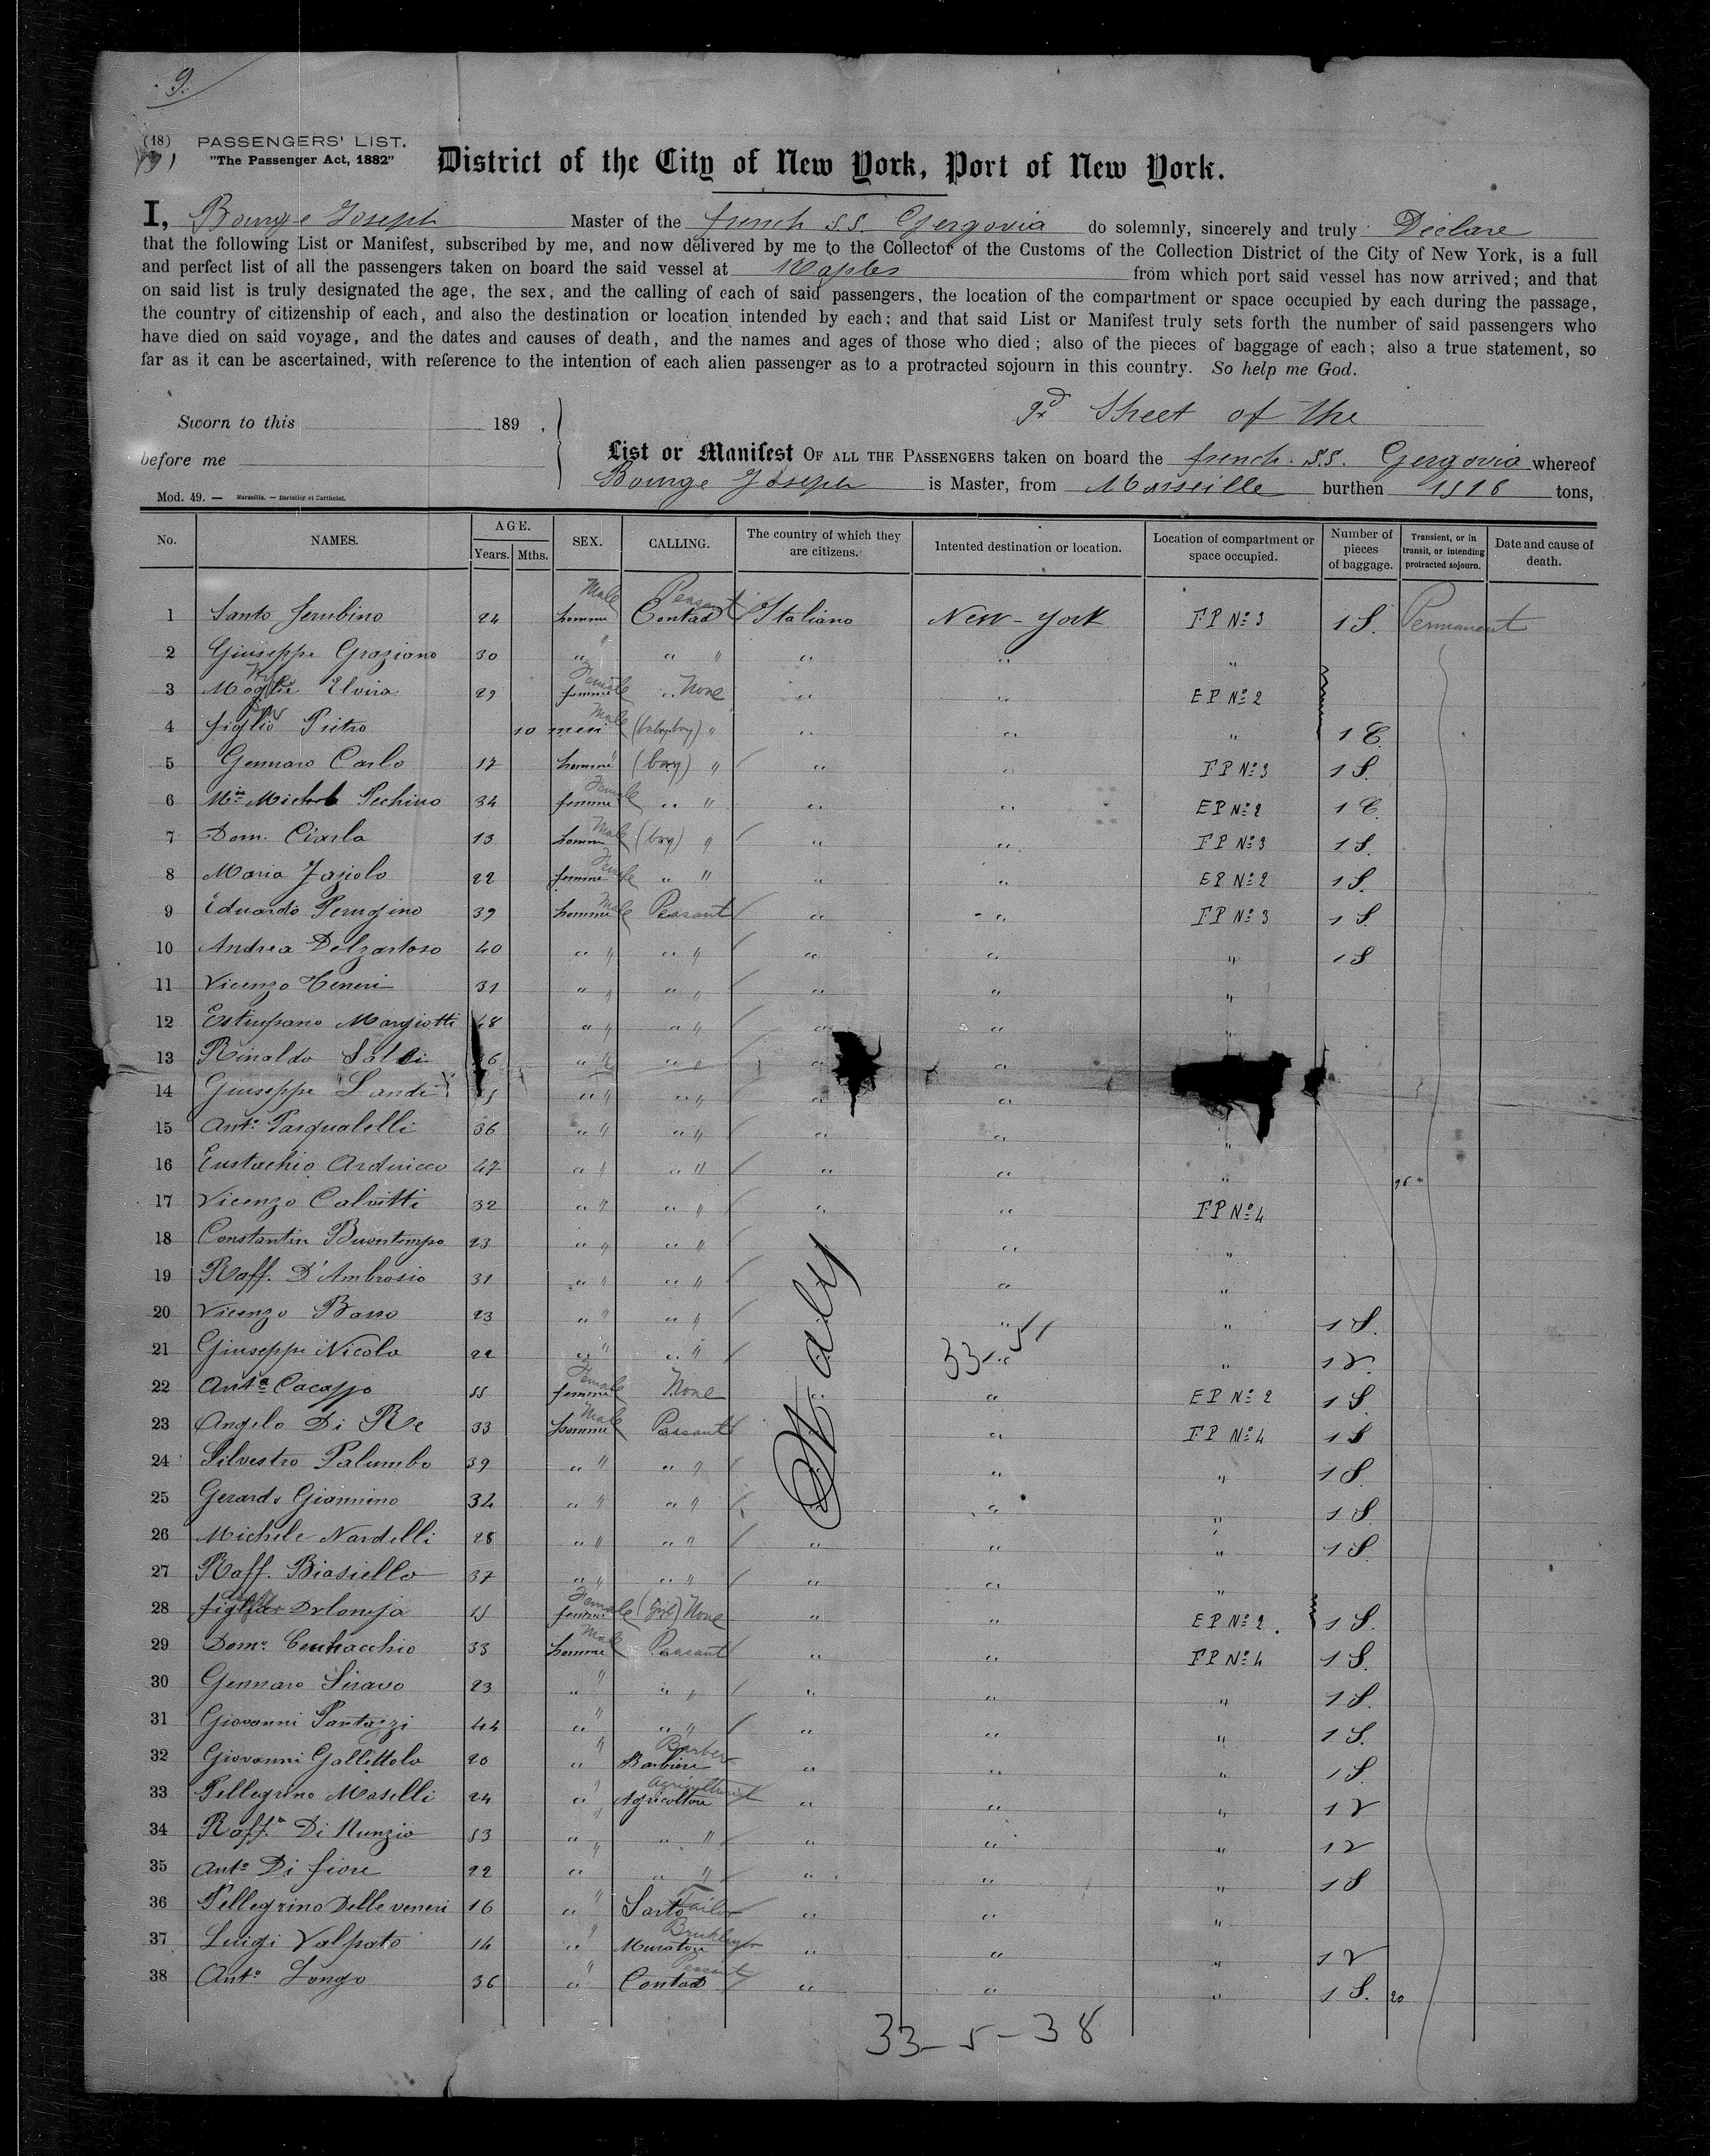 9.
(18) PASSENGERS' LIST.
"The Passenger Act, 1882"
District of the City of New York, Port of New York.
I, Bourge Joseph Master of the french S.S. Gergovia do solemnly, sincerely and truly Déclare
that the following List or Manifest, subscribed by me, and now delivered by me to the Collector of the Customs of the Collection District of the City of New York, is a full
and perfect list of all the passengers taken on board the said vessel at Naples from which port said vessel has now arrived; and that
on said list is truly designated the age, the sex, and the calling of each of said passengers, the location of the compartment or space occupied by each during the passage,
the country of citizenship of each, and also the destination or location intended by each; and that said List or Manifest truly sets forth the number of said passengers who
have died on said voyage, and the dates and causes of death, and the names and ages of those who died; also of the pieces of baggage of each; also a true statement, so
far as it can be ascertained, with reference to the intention of each alien passenger as to a protracted sojourn in this country. So help me God.
Sworn to this 189 ,
before me
Sheet of the
List or Manifest OF ALL THE PASSENGERS taken on board the french S.S. Gergovia whereof
Bourge Joseph is Master, from Marseille burthen tons,
Mod. 49. — Marseille. — Barlatier et Barthelet.
No. NAMES. AGE. Years. Mths. SEX. CALLING. The country of which they are citizens. Intented destination or location. Location of compartment or space occupied. Number of pieces of baggage. Transient, or in transit, or intending protracted sojourn. Date and cause of death.
1 Santo 24 homme Male Contad Peasant Italiano New-York FP Nº 3 1 S. Permanent
2 Giuseppe Graziano 30 " " " " " " "
3 Moglie Wife Elvira 29 femme Female " None " " EP Nº 2
4 figlio Pietro 10 mesi Male (baby boy) " " " " 1 C.
5 Gennaro Carlo 17 homme " (boy) " " " FP Nº 3 1 S.
6 Pechino 34 femme Female " " " " EP Nº 2 1 C.
7 Dom. Ciarla 13 homme Male (boy) " " " FP Nº 3 1 S.
8 Maria 22 femme Female " " " " EP Nº 2 1 S.
9 Eduardo Perugino 39 homme Male Peasant " " FP Nº 3 1 S.
10 Andrea 40 " " " " " " " 1 S
11 Vicenzo 31 " " " " " " "
12 Margiotti 48 " " " " " " "
13 Rinaldo " " " " " "
14 Giuseppe Landi " " " " " "
15 Antº Pasqualelli 36 " " " " " " "
16 Eustachio Arduicco 47 " " " " " " "
17 Vicenzo Calvitti 32 " " " " " " FP Nº 4
18 Constantin Buontempo 23 " " " " " "
19 Raff. D'Ambrosio 31 " " " " " "
20 Vicenzo Basso 23 " " " " " " 1 S.
21 Giuseppe Nicola 22 " " " " " " 1 V
22 Antª Cacaffo 55 femme Female None " " EP Nº 2 1 S.
23 Angelo Di Re 33 homme Male Peasant " FP Nº 4 1 S
24 Silvestro Palumbo 39 " " " " " " 1 S.
25 Gerardo Giannino 32 " " " " " " 1 S.
26 Michele Nardelli 28 " " " " " " " 1 S.
27 Raff. Biasiello 37 " " " " " " "
28 figlia 15 femme Female (Girl) None " " EP Nº 2 1 S.
29 Domº 33 homme Male Peasant " " FP Nº 4 1 S.
30 Gennaro Siravo 23 " " " " " " " 1 S.
31 Giovanni Pantazzi 44 " " " " " " " 1 S.
32 Giovanni Gallittolo 20 " " Barbiere Barber " " " 1 S.
33 Pellegrino Maselli 24 " " Agricoltore Agriculturist " " " 1 V
34 Raffº Di Nunzio 53 " " " " " " " 1 V
35 Antº Di fiore 22 " " " " " " 1 S
36 Pellegrino Delleveneri 16 " " Sarto Tailor " " "
37 Luigi Valpato 14 " " Muratore Bricklayer " " " 1 V
38 Antº Longo 36 " " Contad Peasant " " " 1 S. 20
Italy
33-5-38